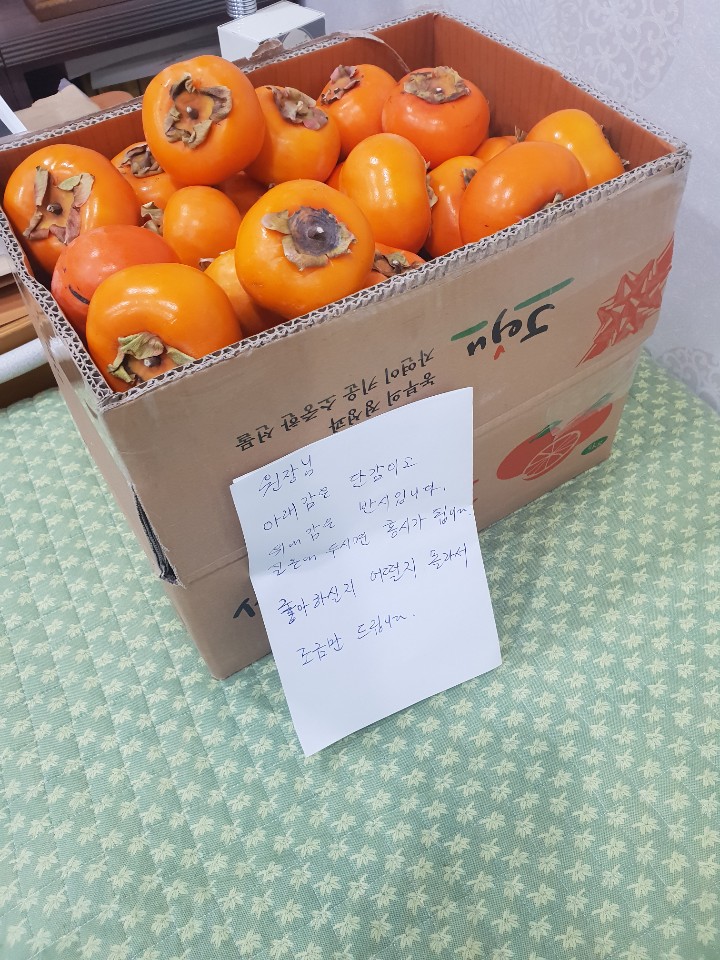 Jeju
농부의 정성과
자연이 키운 소중한 선물
원장님
아래감은 단감이고
위에 감은 반시입니다.
두시면 홍시가 됩니다.
좋아하실지 어떨지 몰라서
조금만 드립니다.